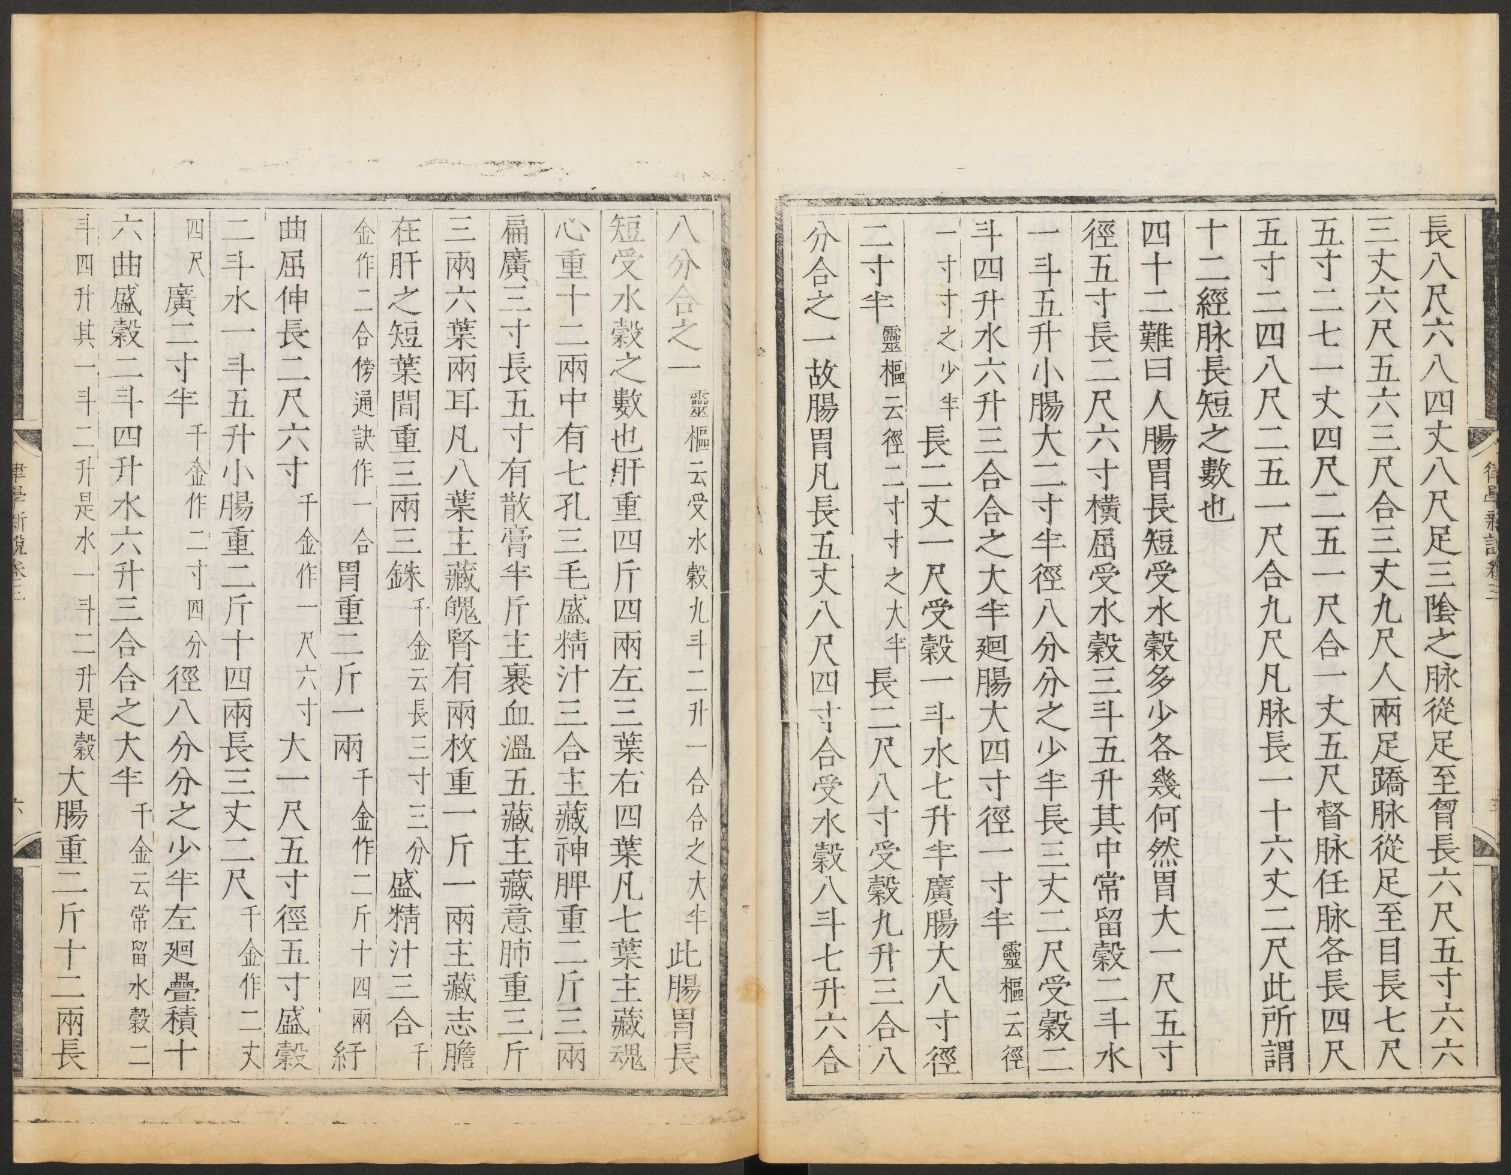 長八尺六八四丈八尺足三陰之脉從足至胷長六尺五寸六六
三丈六尺五六三尺合三丈九尺人兩足蹻脉從足至目長七尺
五寸二七一丈四尺二五一尺合一丈五尺督脉任脉各長四尺
五寸二四八尺二五一尺合九尺凡脉長一十六丈二尺此所謂
十二經脉長短之數也
四十二難曰人腸胃長短受水穀多少各幾何然胃大一尺五寸
徑五寸長二尺六寸橫屈受水穀三斗五升其中常留穀二斗水
一斗五升小腸大二寸半徑八分分之少半長三丈二尺受穀二
斗四升水六升三合合之大半廻腸大四寸徑一寸半靈樞云徑
一寸寸之少半長二丈一尺受穀一斗水七升半廣腸大八寸徑
二寸半靈樞云徑二寸寸之大半長二尺八寸受穀九升三合八
分合之一故腸胃凡長五丈八尺四寸合受水穀八斗七升六合
八分合之一靈樞云受水穀九斗二升一合合之大半此腸胃長
短受水穀之數也肝重四斤四兩左三葉右四葉凡七葉主藏魂
心重十二兩中有七孔三毛盛精汁三合主藏神脾重二斤三兩
扁廣三寸長五寸有散膏半斤主裹血溫五藏主藏意肺重三斤
三兩六葉兩耳凡八葉主藏魄腎有兩枚重一斤一兩主藏志膽
在肝之短葉間重三兩三銖千金云長三寸三分盛精汁三合千
金作二合傍通訣作一合胃重二斤一兩千金作二斤十四兩紆
曲屈伸長二尺六寸千金作一尺六寸大一尺五寸徑五寸盛穀
二斗水一斗五升小腸重二斤十四兩長三丈二尺千金作二丈
四尺廣二寸半千金作二寸四分徑八分分之少半左廻疊積十
六曲盛穀二斗四升水六升三合合之大半千金云常留水穀二
斗四升其一斗二升是水一斗二升是穀大腸重二斤十二兩長
律學新說卷三
六